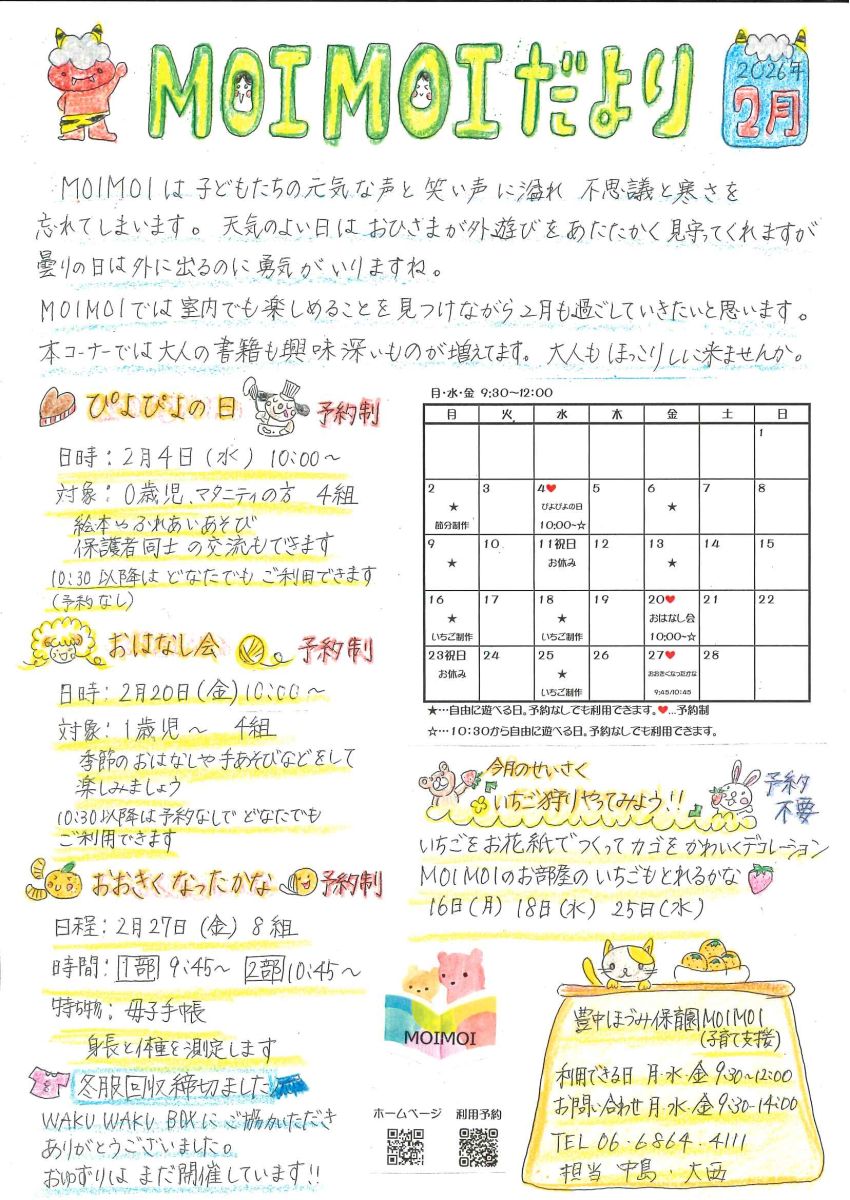 MOIMOIだより
2026年
2月
MOIMOIは子どもたちの元気な声と笑い声に溢れ 不思議と寒さを
忘れてしまいます。天気のよい日は おひさまが外遊びを あたたかく見守ってくれますが
曇りの日は外に出るのに勇気がいりますね。
MOIMOIでは室内でも楽しめることを見つけながら2月も過ごしていきたいと思います。
本コーナーでは大人の書籍も興味深いものが増えてます。大人も ほっこりしに来ませんか。
ぴよぴよの日 予約制
日時：2月4日（水） 10:00～
対象：0歳児、マタニティの方 4組
絵本やふれあいあそび
保護者同士の交流もできます
10:30以降は どなたでも ご利用できます
(予約なし)
おはなし会 予約制
日時：2月20日(金)10:00～
対象：1歳児～ 4組
季節のおはなしや手あそびなどをして
楽しみましょう
10:30以降は予約なしで どなたでも
ご利用できます
おおきくなったかな 予約制
日程：2月27日(金) 8組
時間：1部 9:45～ 2部 10:45～
持ち物：母子手帳
身長と体重を測定します
冬服回収締切ました
WAKU WAKU BOXに ご協力いただき
ありがとうございました。
おゆずりは まだ開催しています!!
月・水・金 9:30～12:00
月 火 水 木 金 土 日
1
2 3 4♥ 5 6 7 8
★ ぴよぴよの日 ★
節分制作 10:00～☆
9 10 11祝日 12 13 14 15
★ お休み ★
16 17 18 19 20♥ 21 22
★ ★ おはなし会
いちご制作 いちご制作 10:00～☆
23祝日 24 25 26 27♥ 28
お休み ★ おおきくなったかな
いちご制作 9:45/10:45
★…自由に遊べる日。予約なしでも利用できます。♥…予約制
☆…10:30から自由に遊べる日。予約なしでも利用できます。
今月のせいさく
いちご狩りやってみよう!!
予約
不要
いちごをお花紙でつくって カゴを かわいくデコレーション
MOIMOIのお部屋の いちごもとれるかな
16日(月) 18日(水) 25日(水)
MOIMOI
ホームページ 利用予約
豊中ほづみ保育園MOIMOI
(子育て支援)
利用できる日 月・水・金 9:30～12:00
お問い合わせ 月・水・金 9:30～14:00
TEL 06・6864・4111
担当 中島・大西